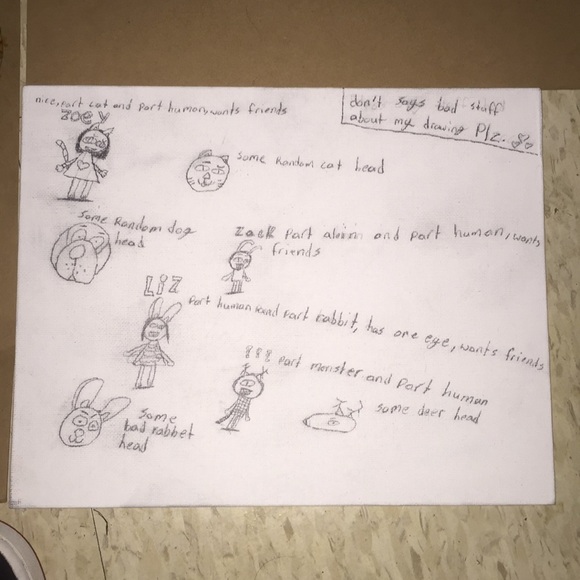 nice, part cat and part human, wants friends
zoey
don't says bad stuff
about my drawing Plz.
some Random cat head
some Random dog
head
zack part alvion and part human, wants
friends
Liz
part human and part rabbit, has one eye, wants friends
??? part monster and part human
some deer head
some
bad rabbet
head